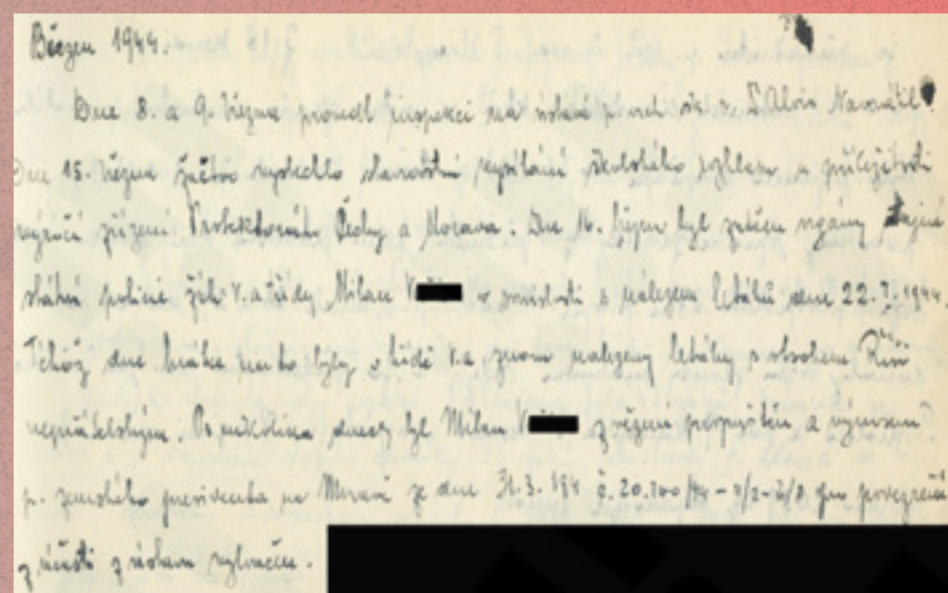 Březen 1944.
Dne 8. a 9. března provedl inspekci na ústavě p. Alois Navrátil
Dne 15. března žactvo vyslechlo slavnostní vysílání školského rozhlasu u příležitosti
výročí zřízení Protektorátu Čechy a Morava. Dne 16. byl zatčen orgány Tajné
státní policie žák V.a třídy Milan V v souvislosti s nálezem letáků dne 22.
Téhož dne krátce nato byly v třídě V.a znovu nalezeny letáky s obsahem Říši
nepřátelským. Po několika dnech byl Milan V z vězení propuštěn a výnosem
p. zemského presidenta na Moravě ze dne 31.3.194 č. pro
z účasti z ústavu vyloučen.